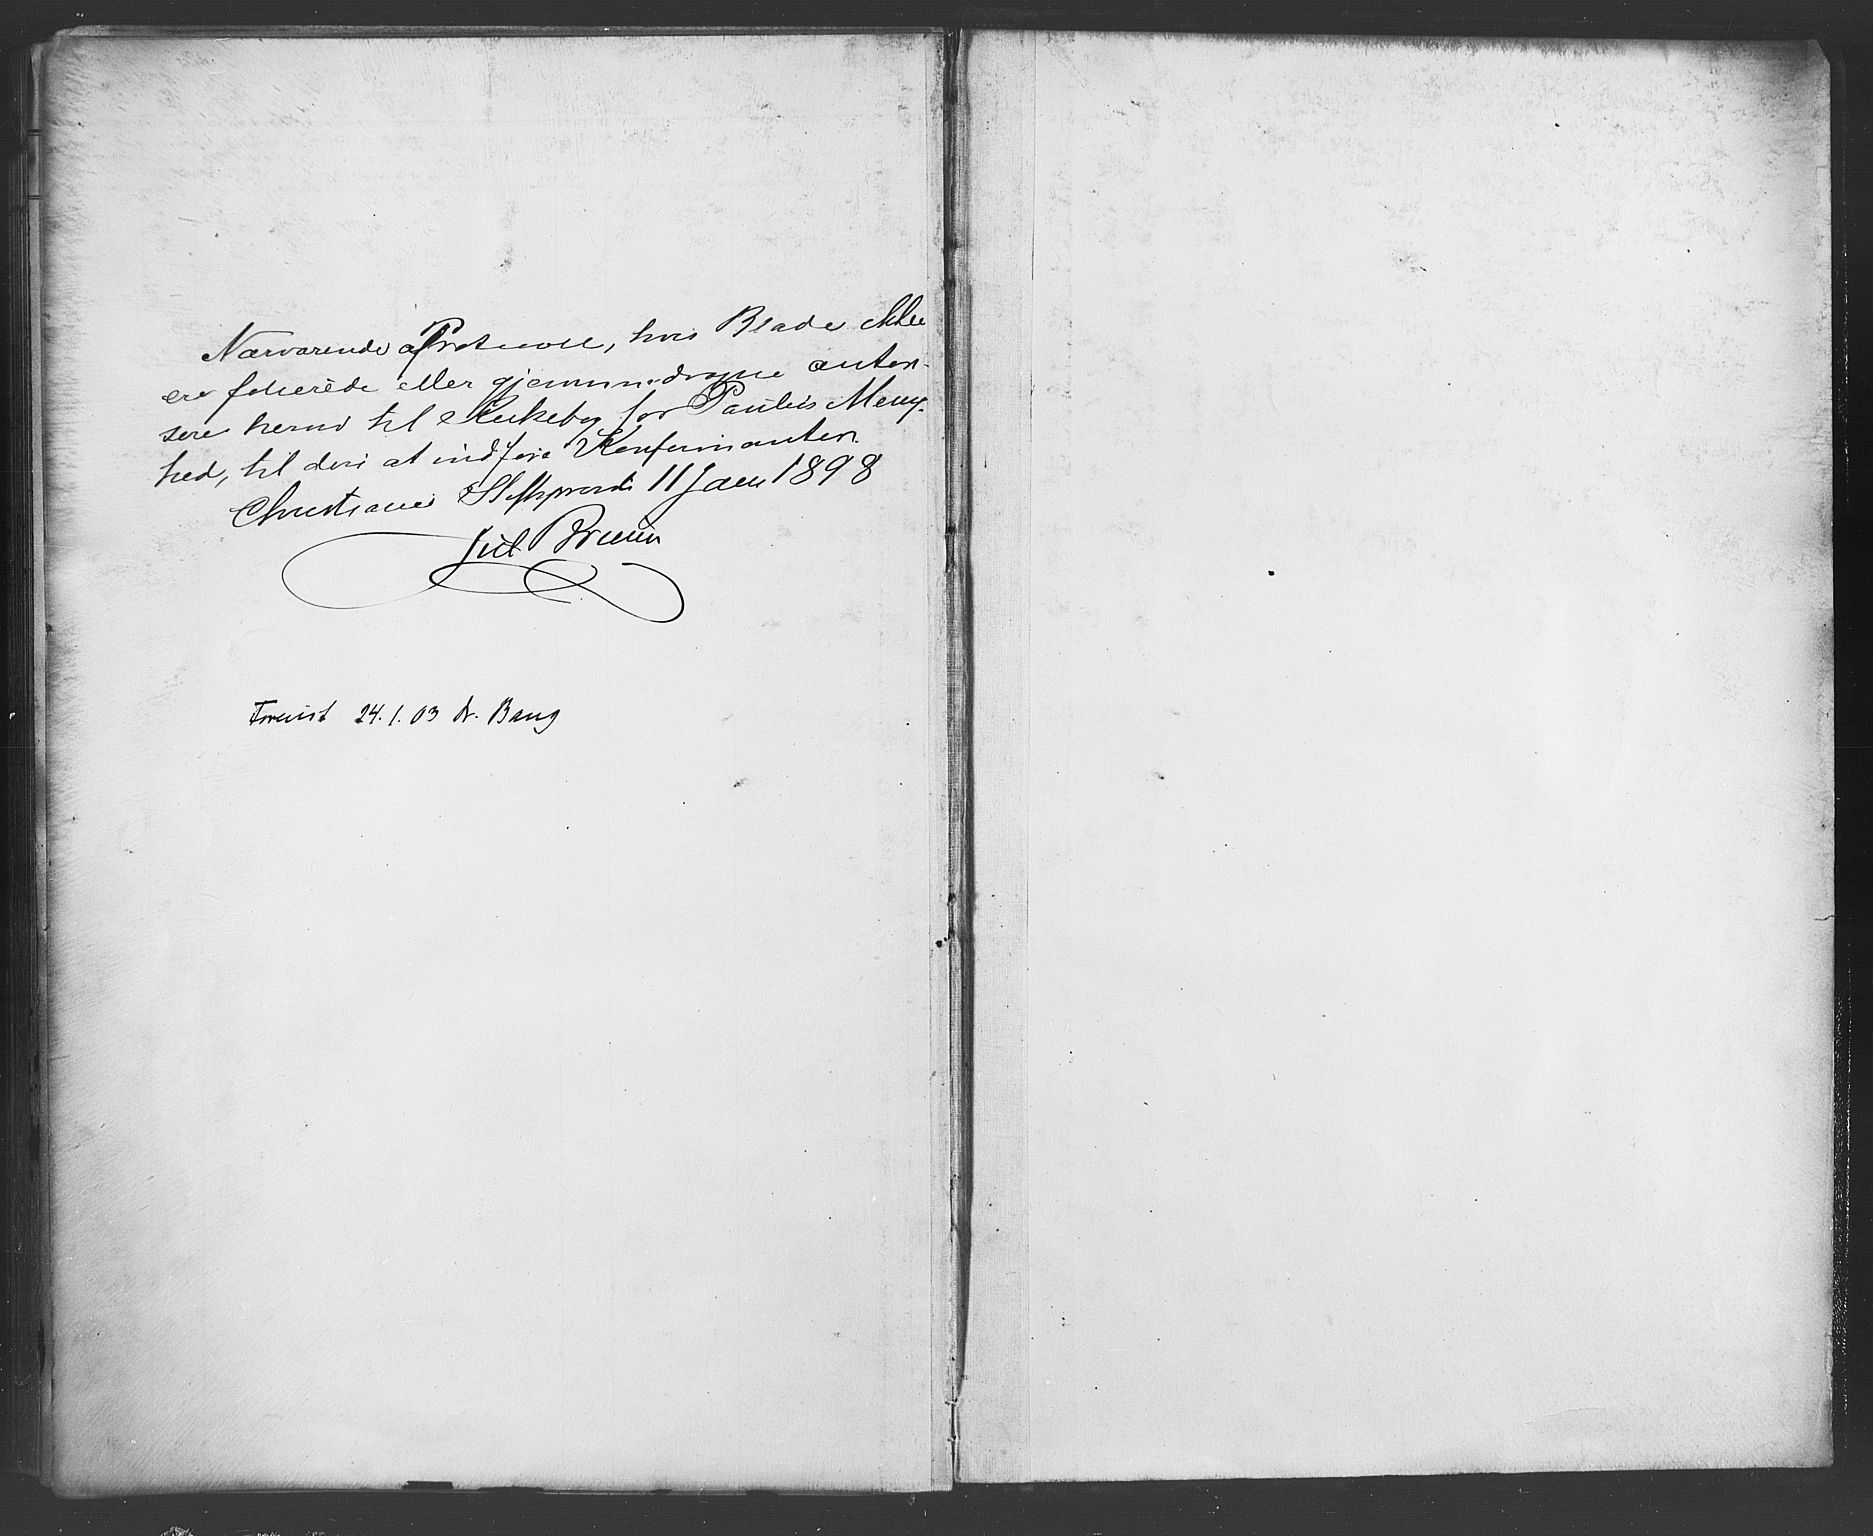 Nærværende Protocoll, hvis Blade ikke
ere folierede eller gjennemdragne autori-
sere herved til Kirkebog for Paulus Menig-
hed, til deri at indføre Konfirmanter.
Christiania Stiftsprovsti 11 Jan 1898
Jul Bruun
Forevist 24.1.03 Dr. Bang